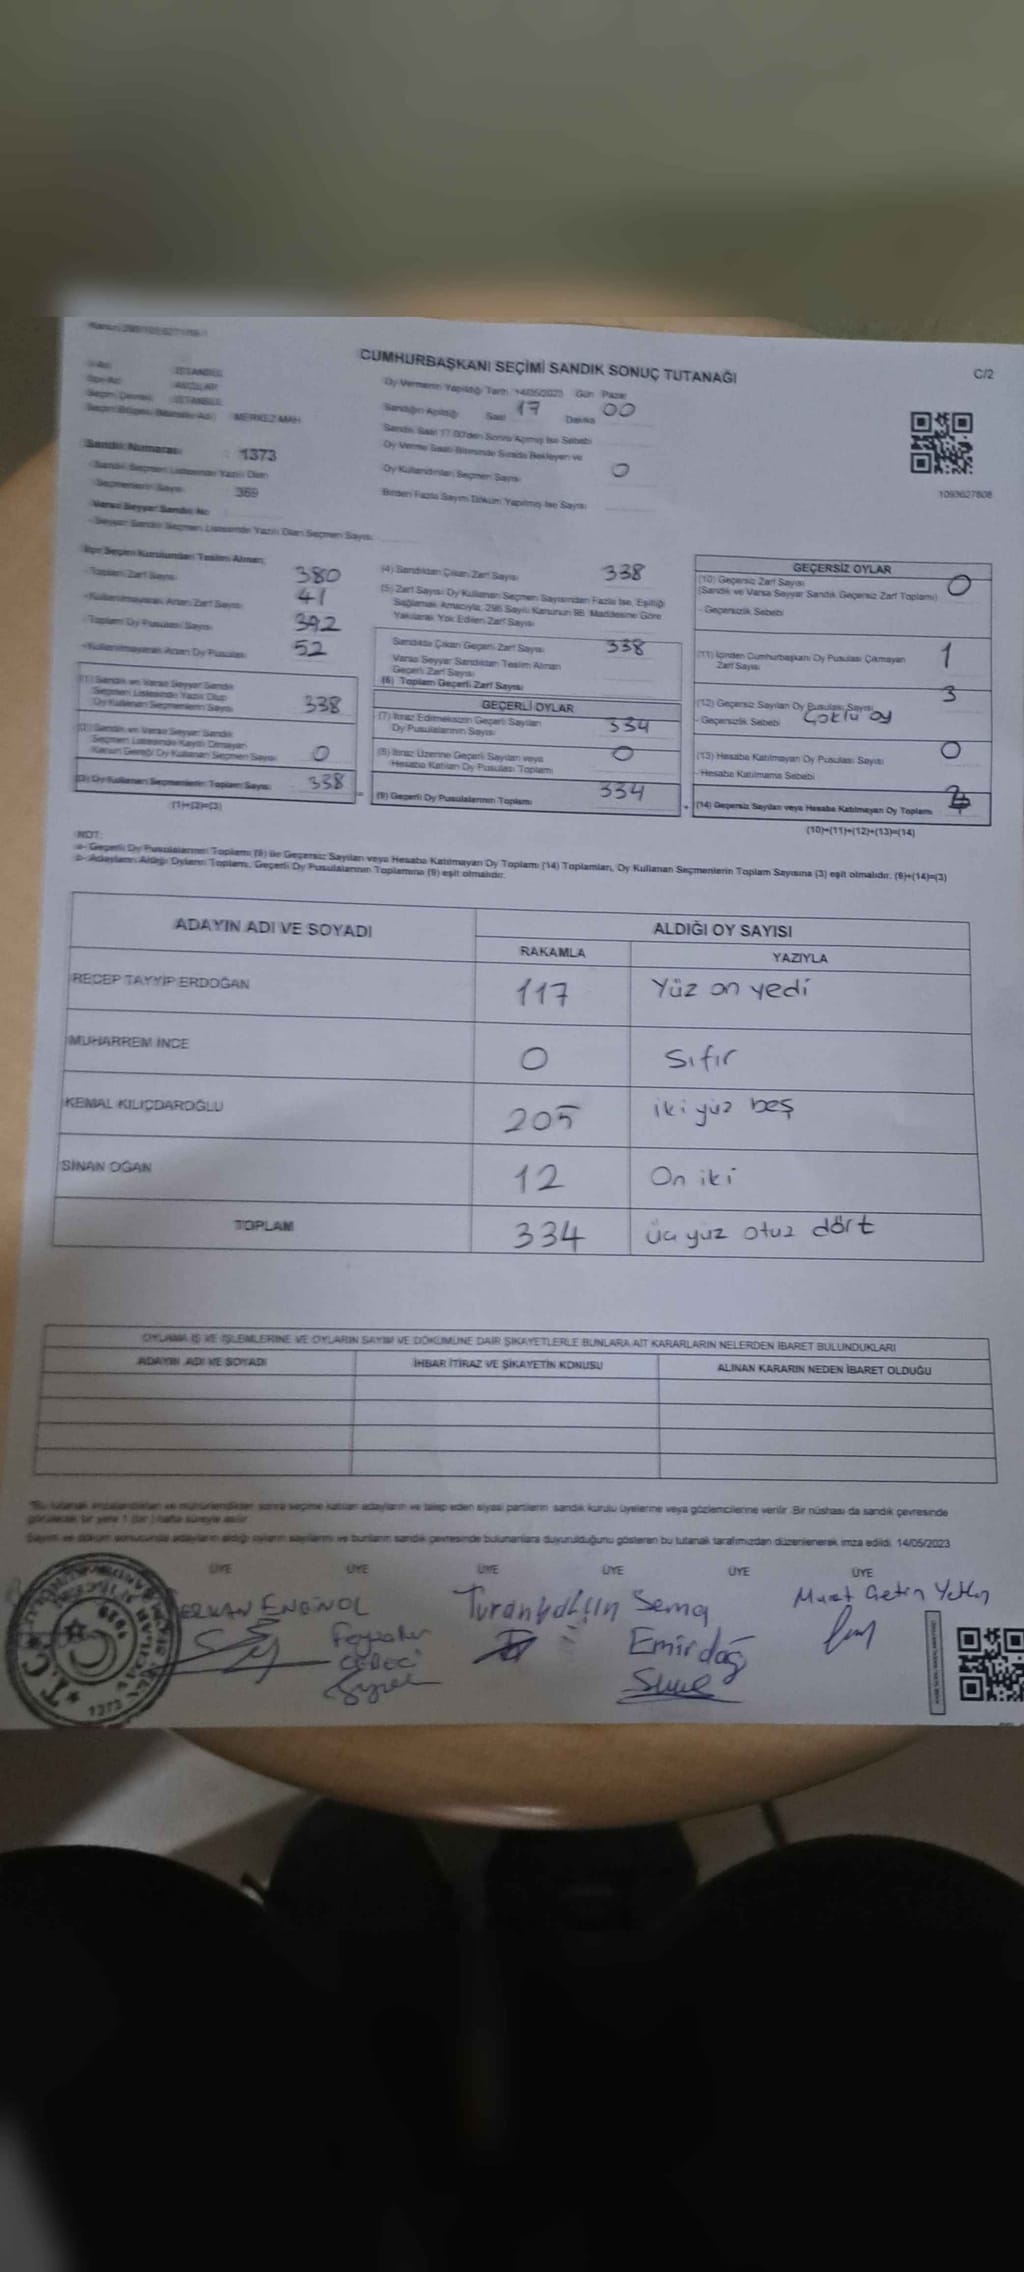 CUMHURBAŞKANI SEÇİMİ SANDIK SONUÇ TUTANAĞI
C/2
İSTANBUL
AVCILAR
İSTANBUL
MERKEZ MAH
Oy Vermenin Yapıldığı Tarih 14/05/2023 Gün Pazar
Sandığın Açıldığı Saat 17 Dakika 00
Sandık Saat 17.00'den Sonra Açılmış İse Sebebi
Oy Verme Saati Bitiminde Sırada Bekleyen ve
Oy Kullandırılan Seçmen Sayısı 0
Birden Fazla Sayım Döküm Yapılmış İse Sayısı
1093627808
Sandık Numarası : 1373
Sandık Seçmen Listesinde Yazılı Olan
Seçmenlerin Sayısı 369
Varsa Seyyar Sandık No
- Seyyar Sandık Seçmen Listesinde Yazılı Olan Seçmen Sayısı
İlçe Seçim Kurulundan Teslim Alınan;
- Toplam Zarf Sayısı 380
- Kullanılmayarak Artan Zarf Sayısı 41
- Toplam Oy Pusulası Sayısı 392
- Kullanılmayarak Artan Oy Pusulası 52
(1) Sandık ve Varsa Seyyar Sandık
Seçmen Listesinde Yazılı Olup
Oy Kullanan Seçmenlerin Sayısı 338
(2) Sandık ve Varsa Seyyar Sandık
Seçmen Listesinde Kayıtlı Olmayan
Kanun Gereği Oy Kullanan Seçmen Sayısı 0
(3) Oy Kullanan Seçmenlerin Toplam Sayısı 338
(1)+(2)=(3)
(4) Sandıktan Çıkan Zarf Sayısı 338
(5) Zarf Sayısı Oy Kullanan Seçmen Sayısından Fazla İse, Eşitliği
Sağlamak Amacıyla, 298 Sayılı Kanunun 98. Maddesine Göre
Yakılarak Yok Edilen Zarf Sayısı
Sandıkta Çıkan Geçerli Zarf Sayısı 338
Varsa Seyyar Sandıktan Teslim Alınan
Geçerli Zarf Sayısı
(6) Toplam Geçerli Zarf Sayısı
GEÇERLİ OYLAR
(7) İtiraz Edilmeksizin Geçerli Sayılan
Oy Pusulalarının Sayısı 334
(8) İtiraz Üzerine Geçerli Sayılan veya
Hesaba Katılan Oy Pusulası Toplamı 0
(9) Geçerli Oy Pusulalarının Toplamı 334
GEÇERSİZ OYLAR
(10) Geçersiz Zarf Sayısı 0
(Sandık ve Varsa Seyyar Sandık Geçersiz Zarf Toplamı)
- Geçersizlik Sebebi
(11) İçinden Cumhurbaşkanı Oy Pusulası Çıkmayan
Zarf Sayısı 1
(12) Geçersiz Sayılan Oy Pusulası Sayısı 3
- Geçersizlik Sebebi Çoklu oy
(13) Hesaba Katılmayan Oy Pusulası Sayısı 0
- Hesaba Katılmama Sebebi
(14) Geçersiz Sayılan veya Hesaba Katılmayan Oy Toplamı 4
(10)+(11)+(12)+(13)=(14)
NOT:
a- Geçerli Oy Pusulalarının Toplamı (9) ile Geçersiz Sayılan veya Hesaba Katılmayan Oy Toplamı (14) Toplamları, Oy Kullanan Seçmenlerin Toplam Sayısına (3) eşit olmalıdır. (9)+(14)=(3)
b- Adayların Aldığı Oyların Toplamı, Geçerli Oy Pusulalarının Toplamına (9) eşit olmalıdır.
ADAYIN ADI VE SOYADI
ALDIĞI OY SAYISI
RAKAMLA YAZIYLA
RECEP TAYYİP ERDOĞAN 117 Yüz on yedi
MUHARREM İNCE 0 Sıfır
KEMAL KILIÇDAROĞLU 205 iki yüz beş
SİNAN OĞAN 12 On iki
TOPLAM 334 üç yüz otuz dört
OYLAMA İŞ VE İŞLEMLERİNE VE OYLARIN SAYIM VE DÖKÜMÜNE DAİR ŞİKAYETLERLE BUNLARA AİT KARARLARIN NELERDEN İBARET BULUNDUKLARI
ADAYIN ADI VE SOYADI İHBAR İTİRAZ VE ŞİKAYETİN KONUSU ALINAN KARARIN NEDEN İBARET OLDUĞU
*Bu tutanak imzalandıktan ve mühürlendikten sonra seçime katılan adayların ve talep eden siyasi partilerin sandık kurulu üyelerine veya gözlemcilerine verilir. Bir nüshası da sandık çevresinde
görülecek bir yere 1 (bir) hafta süreyle asılır.
Sayım ve döküm sonucunda adayların aldığı oyların sayılarını ve bunların sandık çevresinde bulunanlara duyurulduğunu gösteren bu tutanak tarafımızdan düzenlenerek imza edildi. 14/05/2023
ÜYE ÜYE ÜYE ÜYE ÜYE ÜYE
ERKAN ENGİNOL
Turan
Sema
Emirdağ
Murat Çetin
T.C.
1373